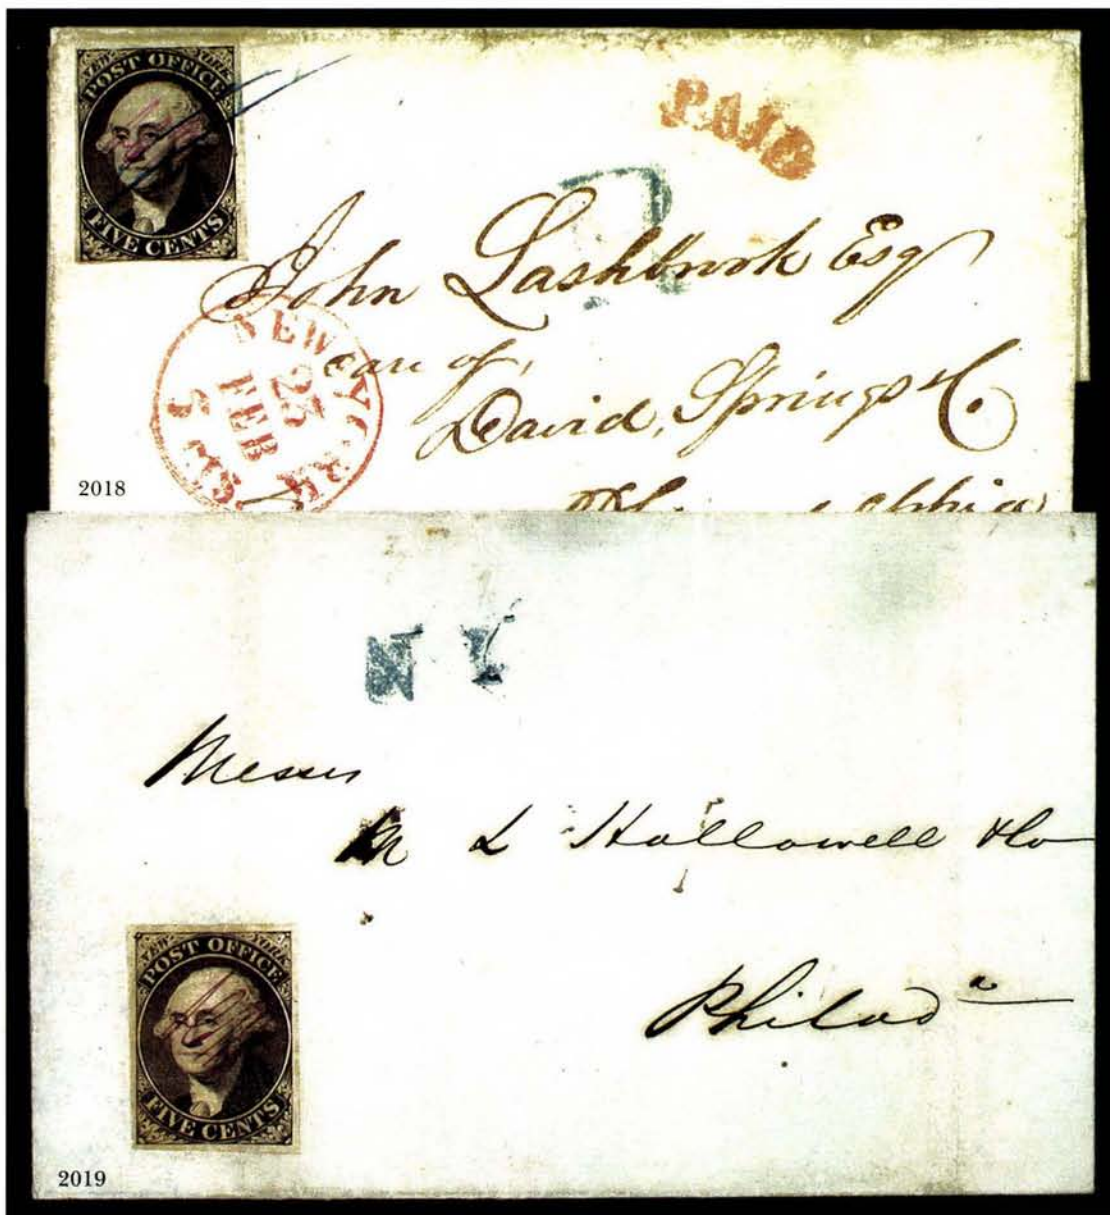 NEW YORK
POST OFFICE
FIVE CENTS
PAID
John Lashbrook Esq
care of,
David, Springs & C.
NEW YORK
5 CTS
23
FEB
2018
N Y
Messrs
M L Hallowell & Co
Philada
NEW YORK
POST OFFICE
FIVE CENTS
2019